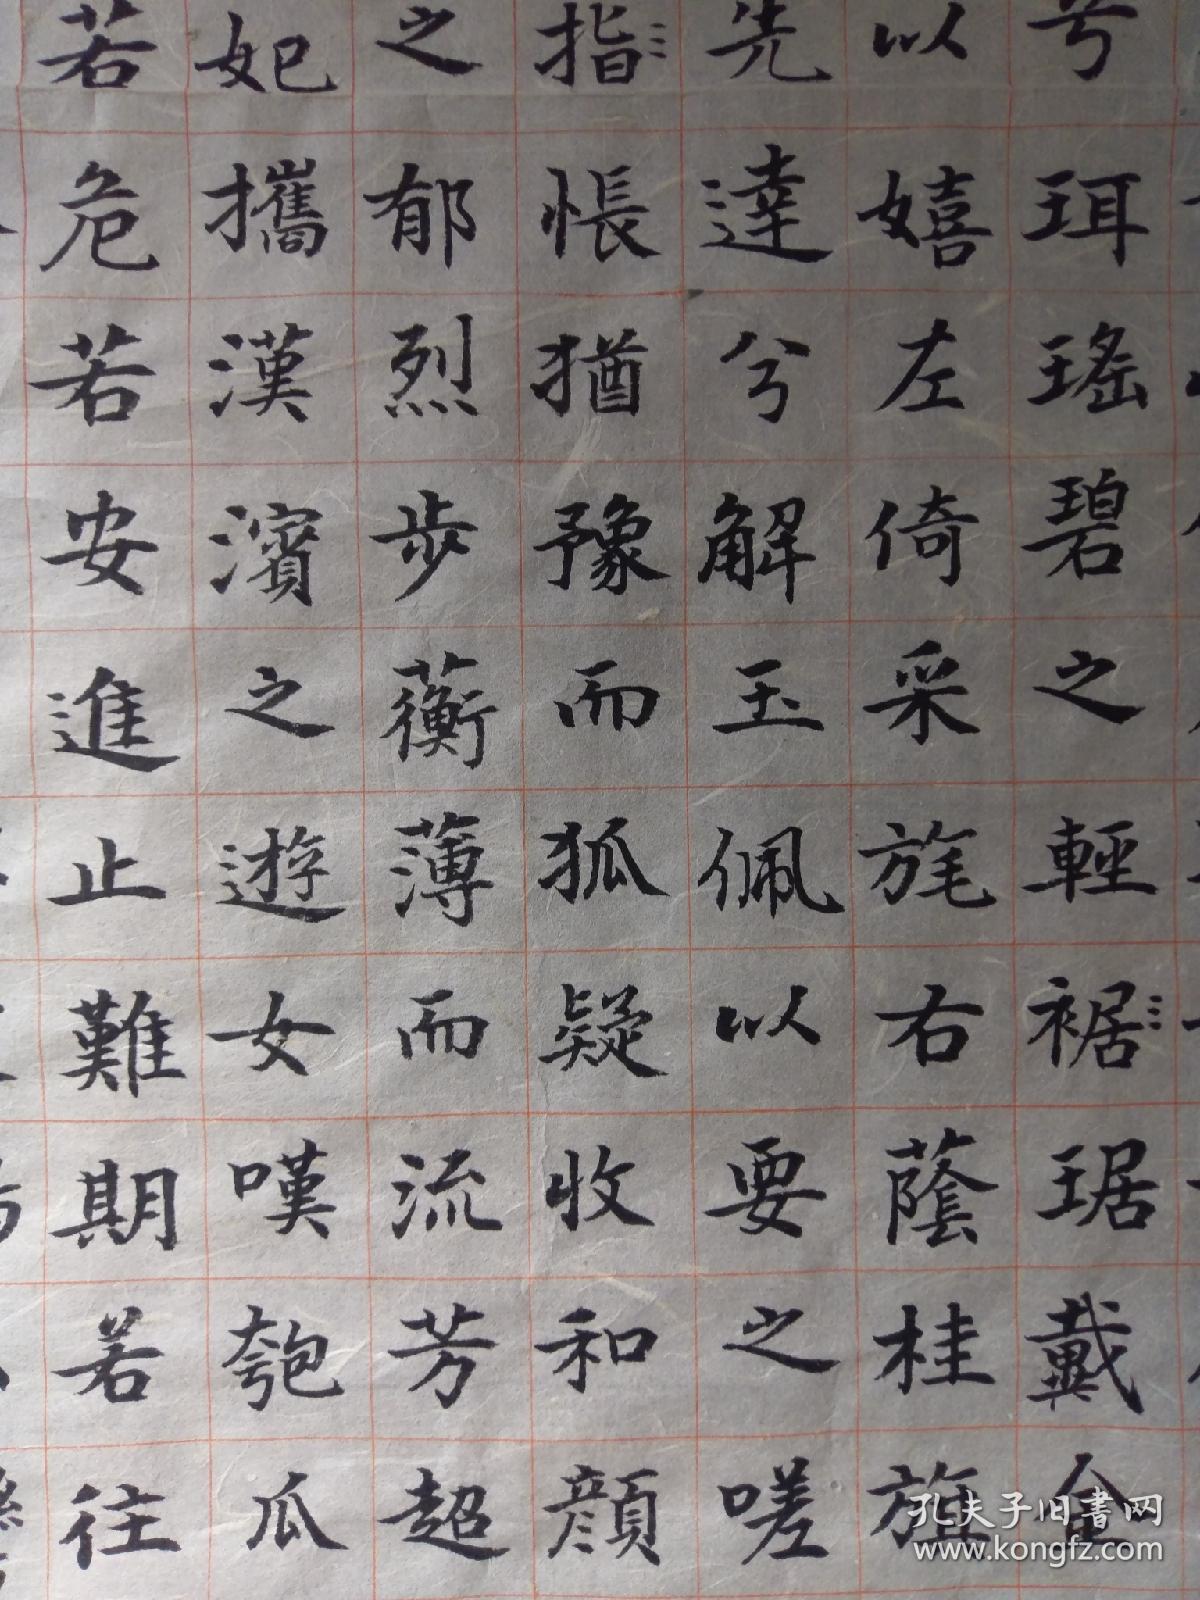 兮珥瑤碧之輕裾琚戴金
以嬉左倚采旄右蔭桂旗
先達兮解玉佩以要之嗟
指悵猶豫而狐疑收和顏
之郁烈步蘅薄而流芳超
妃攜漢濱之遊女嘆匏瓜
若危若安進止難期若往
孔夫子旧書网
www.kongfz.com